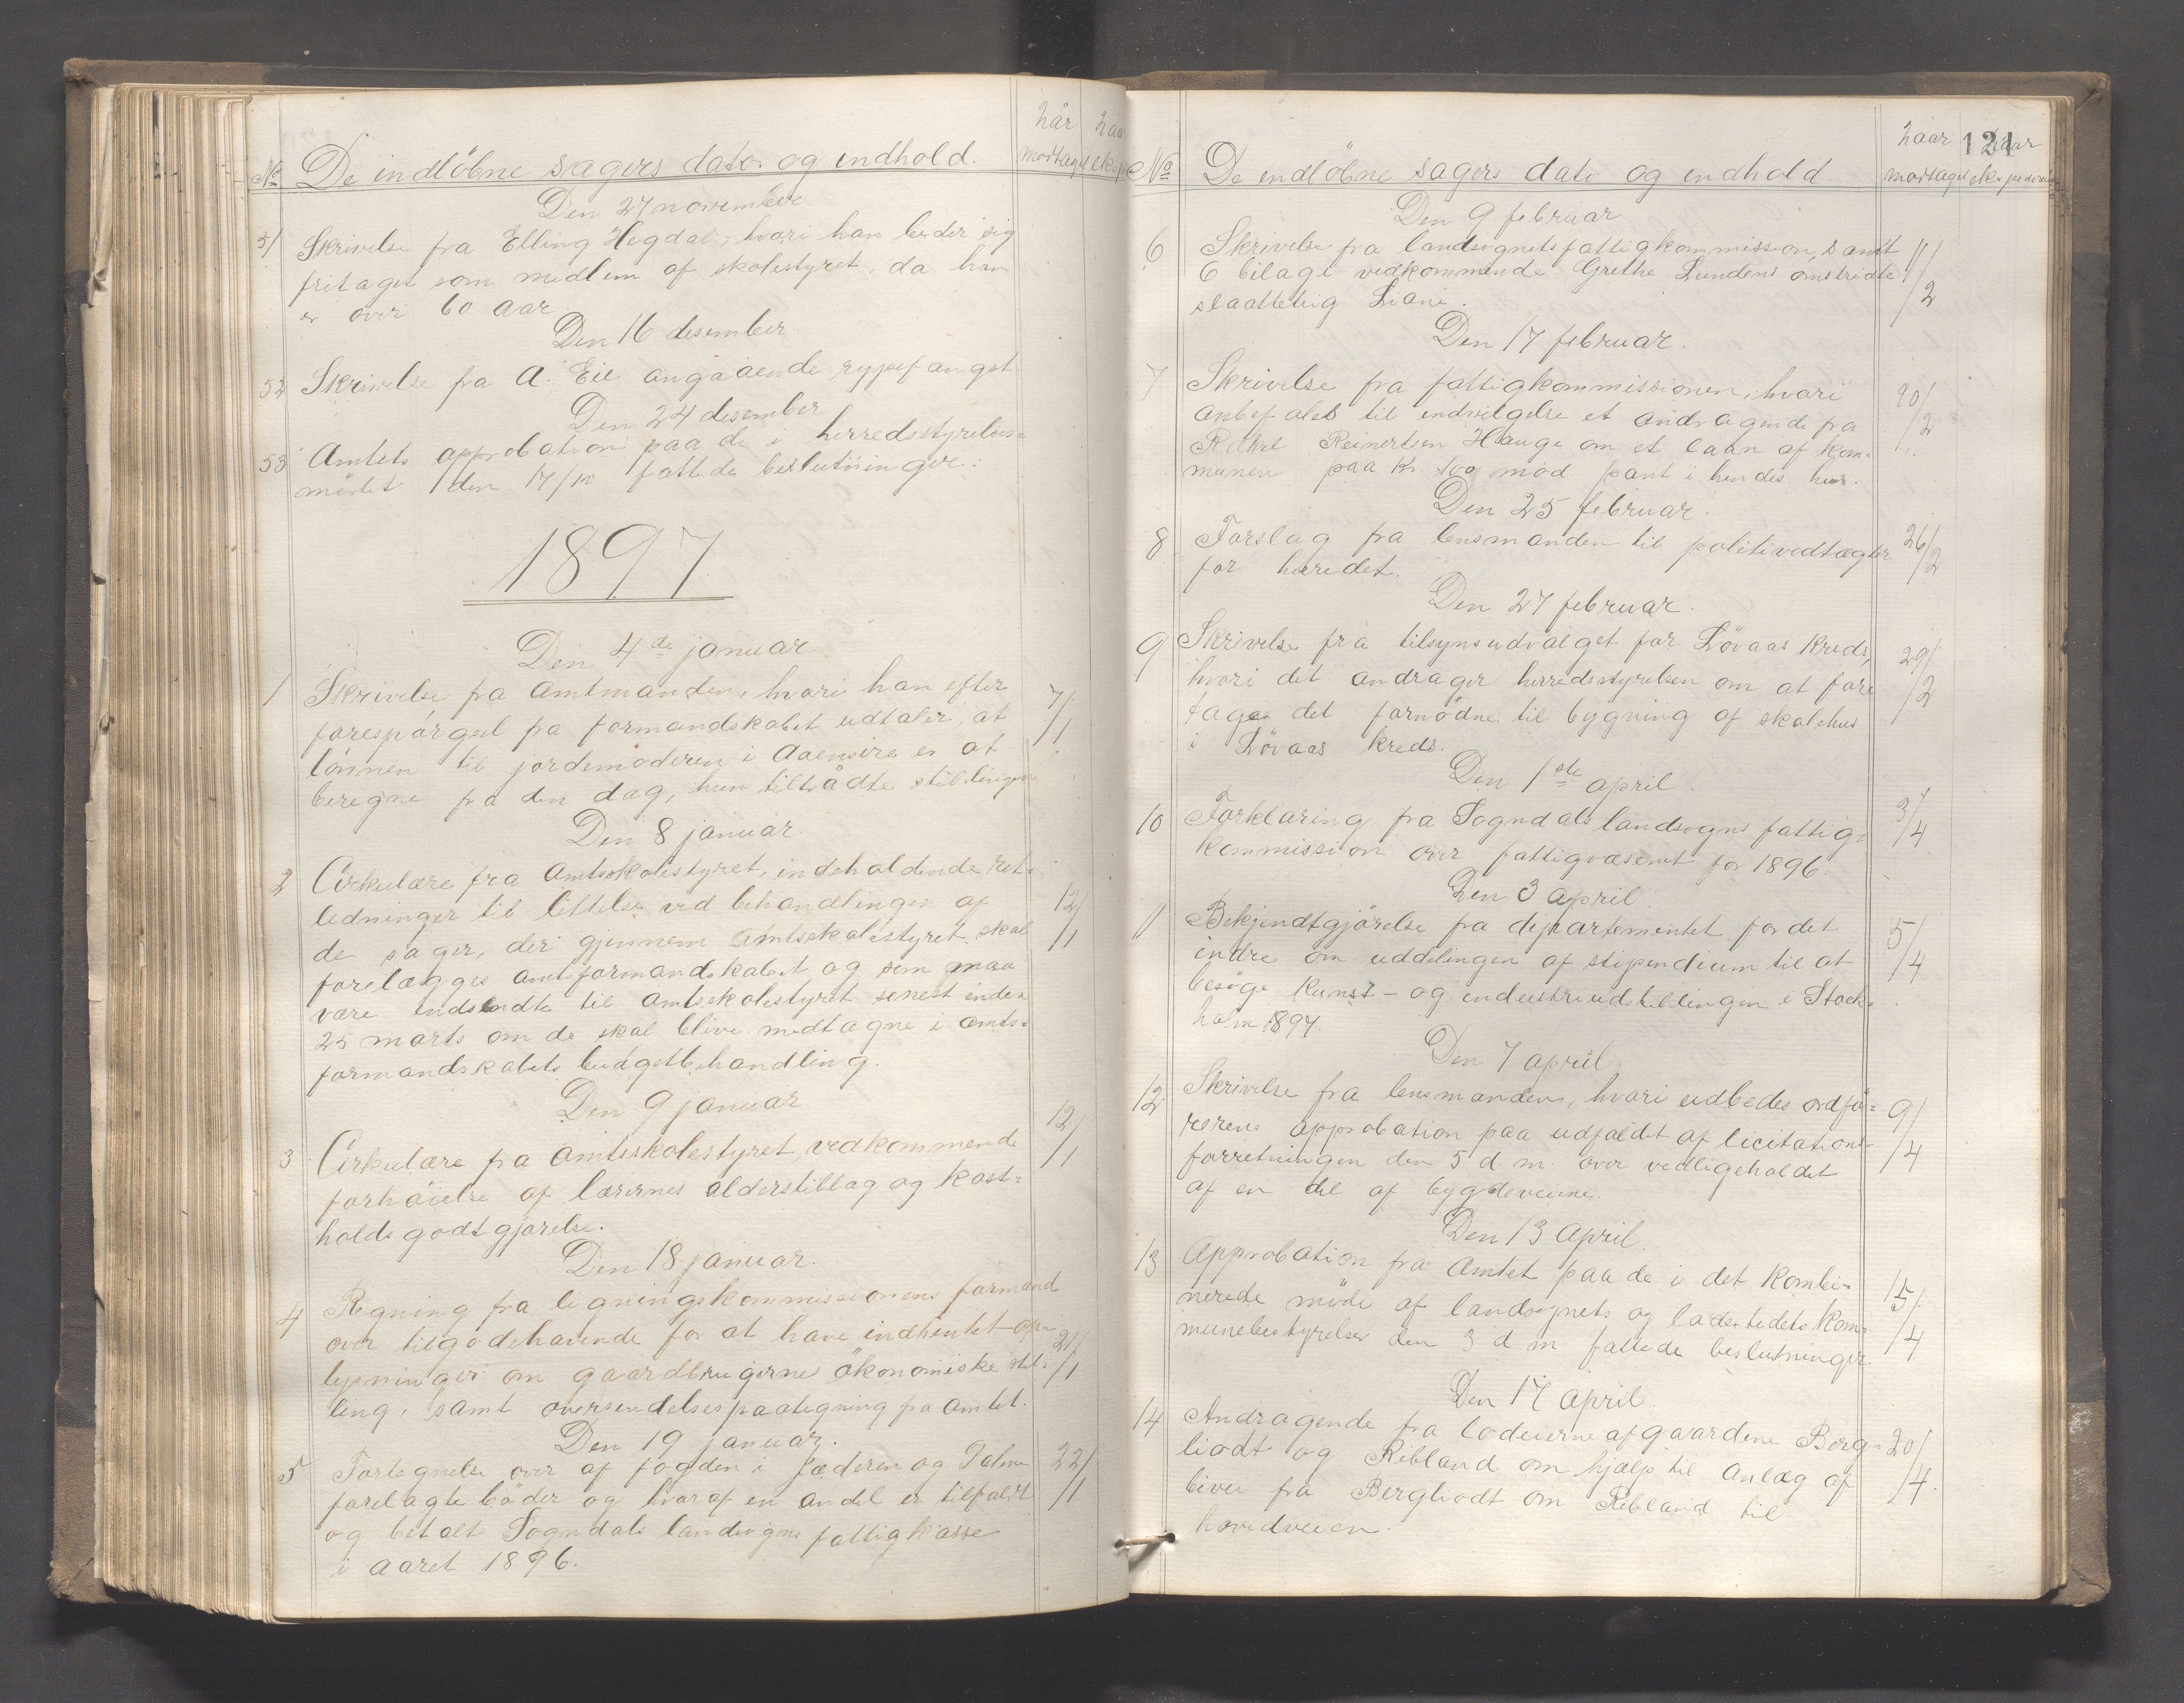 No De indløbne sagers dato og indhold. Når modtaget
Den 27 november
51 Skrivelse fra Elling Hegdal, hvori han beder sig
fritaget som medlem af skolestyret, da han
er over 60 aar
Den 16 desember
52 Skrivelse fra A. Eie angaaende rypefangst
Den 24 desember
53 Amtets approbation paa de i herredsstyrelses=
mødet den 17/10 fattede beslutninger.
1897
Den 4de januar.
1 Skrivelse fra Amtmanden, hvori han efter 7/1
forespørgsel fra formandskabet udtaler, at
lønnen til jordemoderen i Aaensire er at
beregne fra den dag, hun tiltrådte stillingen
Den 8 januar.
2 Cirkulære fra Amtsskolestyret, indeholdende ret=
ledninger til lettelse ved behandlingen af 12/1
de sager, der gjennem Amtsskolestyret skal
forelægges amtsformandskabet og som maa
være indsendte til Amtsskolestyret senest inden
25 marts om de skal blive medtagne i amts=
formandskabets budgetbehandling.
Den 9 januar
3 Cirkulære fra Amtsskolestyret, vedkommende 12/1
forhøielse af lærernes alderstillæg og kost=
holdsgodtgjørelse.
Den 18 januar.
4 Regning fra ligningskommissionens formand
over tilgodehavende for at have indhentet op=
lysninger om gaardbrugernes økonomiske stil= 21/1
ling, samt oversendelsespaategning fra Amtet.
Den 19 januar.
5 Fortegnelse over af fogden i Jæderen og Dalene 22/1
forelagte bøder og hvoraf en andel er tilfaldt
og betalt Sogndals landsogns fattigkasse
i aaret 1896.
121
No De indløbne sagers dato og indhold Naar modtaget Naar ekspederet
Den 9 februar
6 Skrivelse fra landsognets fattigkommission, samt 11/2
6 bilage vedkommende Grethe Lundens omstridte
slaatteteig Liane.
Den 17 februar.
7 Skrivelse fra fattigkommissionen, hvori 20/2
anbefales til indvilgelse et andragende fra
Rakel Reinertsen Hauge om et laan af kom=
munen paa kr. 100 mod pant i hendes hus.
Den 25 februar.
8 Forslag fra lensmanden til politivedtægter 26/2
for herredet.
Den 27 februar.
9 Skrivelse fra tilsynsudvalget for Løvaas kreds, 29/2
hvori det andrager herredsstyrelsen om at fore
tage det fornødne til bygning af skolehus
i Løvaas kreds.
Den 1ste april.
10 Forklaring fra Sogndals landsogns fattig= 3/4
kommission over fattigvæsenet for 1896.
Den 3 april.
11 Bekjendtgjørelse fra departementet for det 5/4
indre om uddelingen af stipendium til at
besøge Kunst- og industriudstillingen i Stock=
holm 1897.
Den 7 april
12 Skrivelse fra lensmanden, hvori udbedes ordfø= 9/4
rerens approbation paa udfaldet af licitations=
forretningen den 5 d. m. over vedligeholdet
af en del af bygdeveiene.
Den 13 april.
13 Approbation fra Amtet paa de i det kombi= 15/4
nerede møde af landsognets og ladestedets kom=
munebestyrelser den 3 d. m. fattede beslutninger.
Den 17 april.
14 Andragende fra lodeierne af gaardene Berg= 20/4
liodt og Rebland om hjælp til anlæg af
bivei fra Bergliodt om Rebland til
hovedveien.